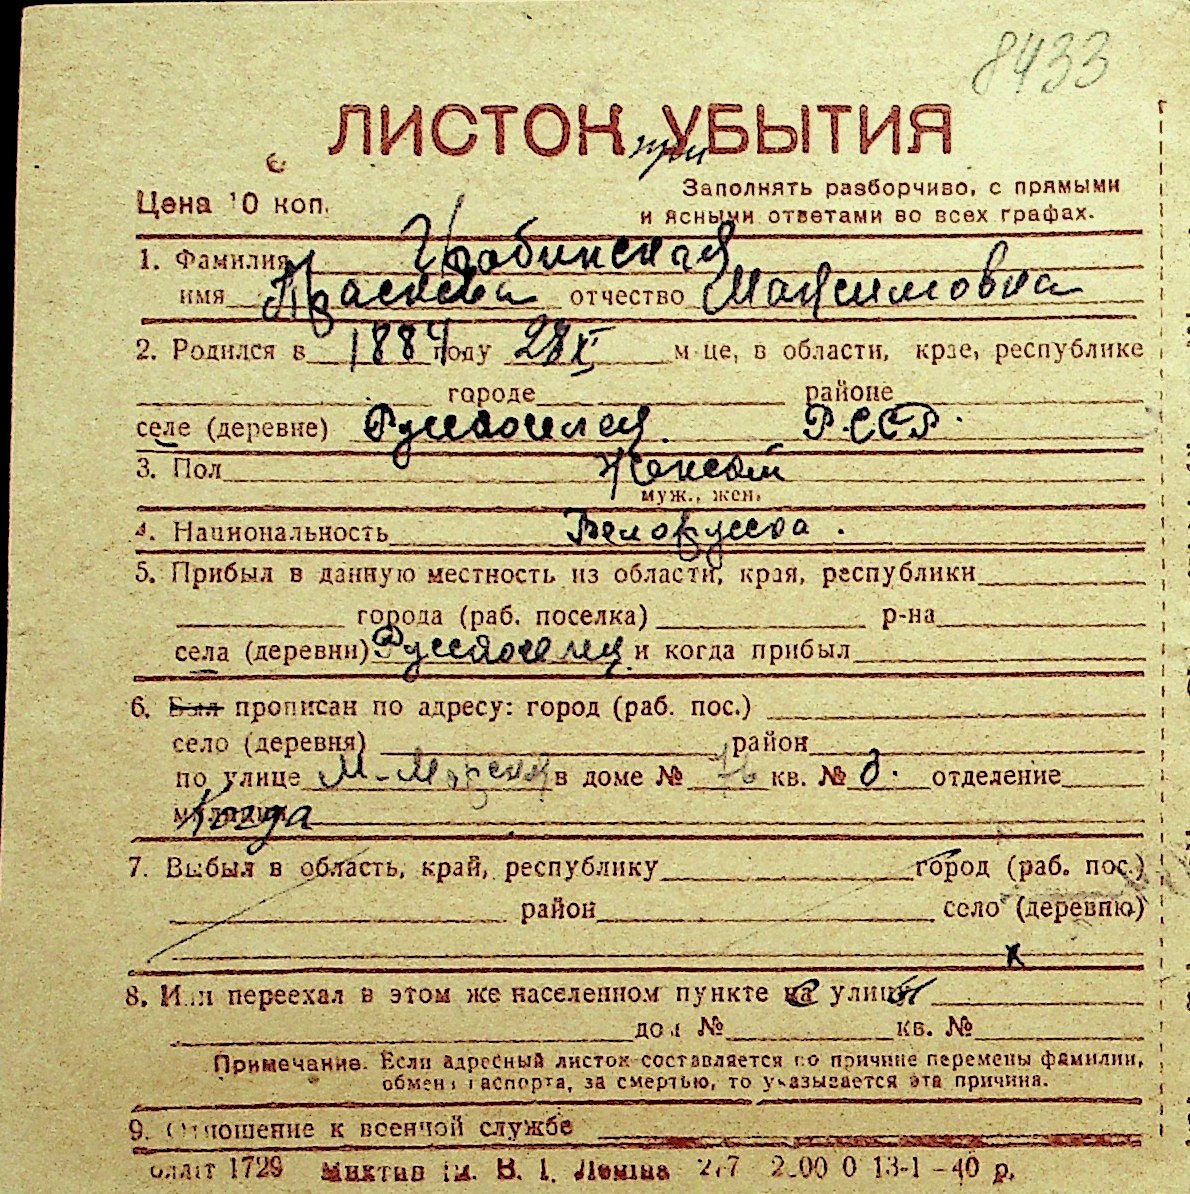 8433
ЛИСТОК при УБЫТИЯ
Цена 10 коп.
Заполнять разборчиво, с прямыми
и ясными ответами во всех графах.
1. Фамилия Грабинская
имя отчество Максимовна
2. Родился в 1884 году 28 XI м-це, в области, крае, республике
городе районе
селе (деревне) Р.ССР.
3. Пол Женский
муж., жен.
4. Национальность Белорусска.
5. Прибыл в данную местность из области, края, республики
города (раб. поселка) р-на
села (деревни) и когда прибыл
6. Был прописан по адресу: город (раб. пос.)
село (деревня) район
по улице М-Морская в доме № кв. № отделение
милиции Когда
7. Выбыл в область, край, республику город (раб. пос.)
район село (деревню)
8. Или переехал в этом же населенном пункте на с улицы
дом № кв. №
Примечание. Если адресный листок составляется по причине перемены фамилии,
обмена паспорта, за смертью, то указывается эта причина.
9. Отношение к военной службе
1729 им. В. І. Леніна 13-1 – 40 р.